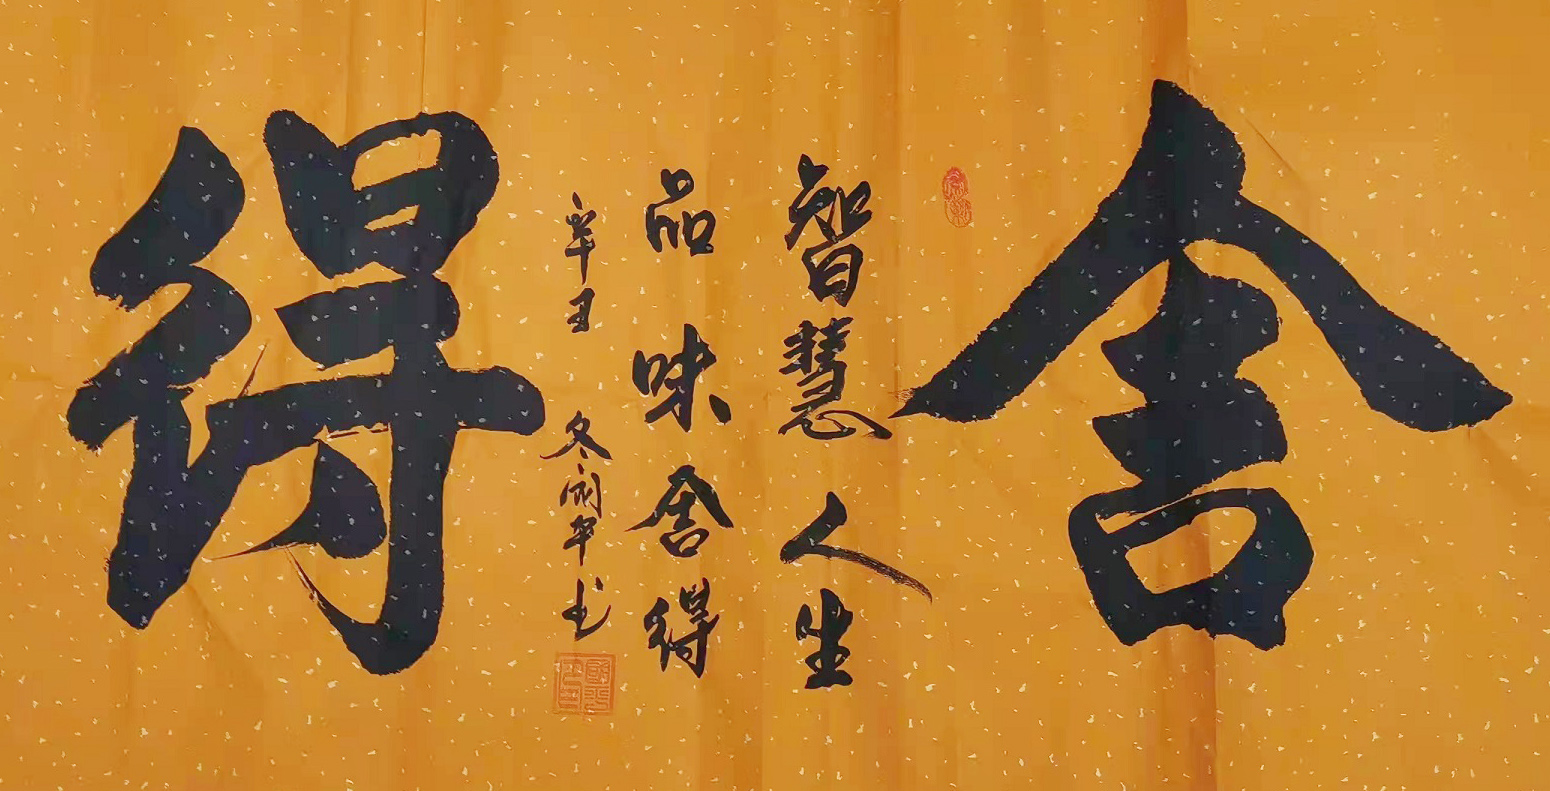 舍
智慧人生
品味舍得
辛丑
冬国平书
得